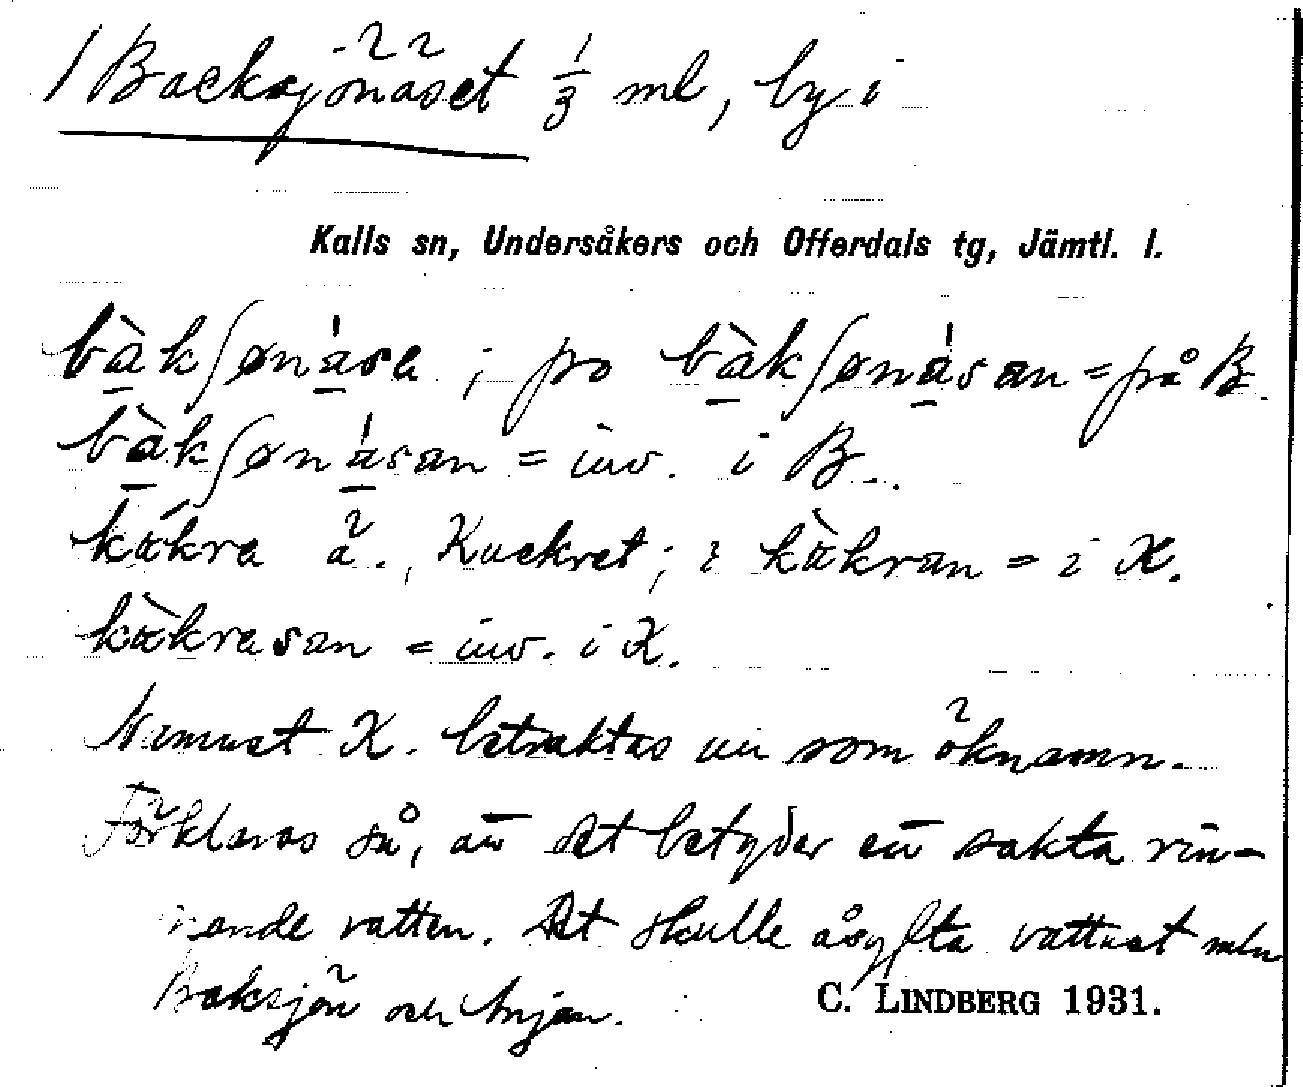 1 Backsjönäset 1/3 ml, by i
Kalls sn, Undersåkers och Offerdals tg, Jämtl. l.
bàkʃønása ; po bàkʃønásan = på B.
bàkʃønásan = inv. i B.
kákra ä. Kackret ; i kàkran = i K.
kàkrasan = inv. i K.
Namnet K. betraktas nu som öknamn.
Förklaras så, att det betyder ett sakta rin-
nande vatten. Det skulle åsyfta vattnet mln
Baksjön och Anjan.
C. LINDBERG 1931.